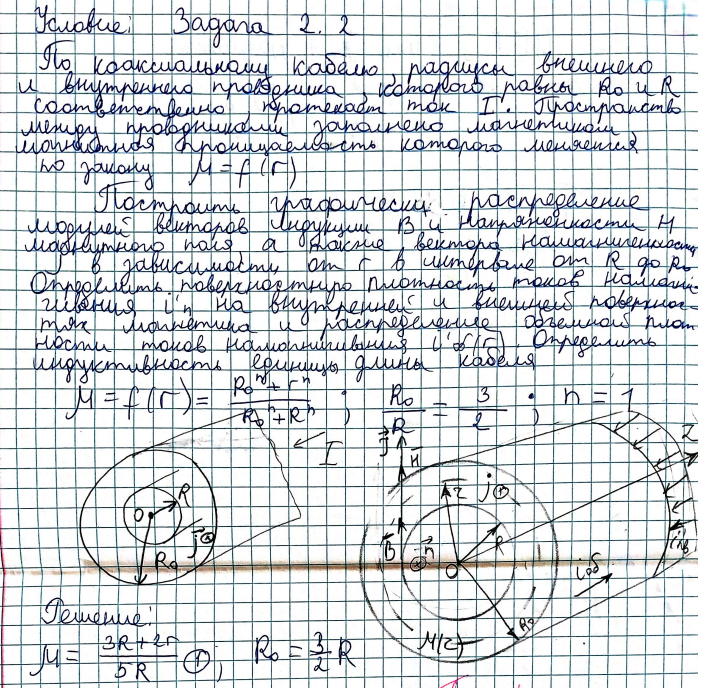 Условие: Задача 2.2
По коаксиальному кабелю, радиусы внешнего
и внутреннего проводника которого равны R₀ и R
соответственно протекает ток I. Пространство
между проводниками заполнено магнетиком
магнитная проницаемость которого меняется
по закону μ = f(r)
Построить графически распределение
модулей векторов индукции B и напряженности H
магнитного поля а также вектора намагниченности
J в зависимости от r в интервале от R до R₀
Определить поверхностную плотность токов намагни-
чивания i'п на внутренней и внешней поверхнос-
тях магнетика и распределение объемной плот-
ности токов намагничивания i'об(r). Определить
индуктивность единицы длины кабеля
μ = f(r) = (R₀ⁿ + rⁿ)/(R₀ⁿ + Rⁿ) ; R₀/R = 3/2 ; n = 1
I
O R j⊕ R₀
J H r j⊕ Z
B n R O i'пв
i'об μ(r) R₀
Решение:
μ = (3R + 2r)/5R ① ; R₀ = 3/2 R